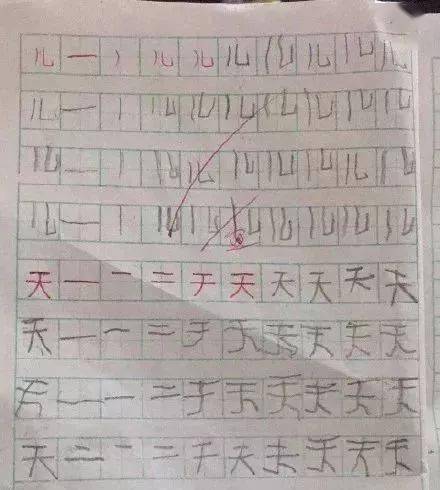 儿一丿儿儿儿儿儿儿儿
儿一丿儿儿儿儿儿儿儿
儿一丿儿儿儿儿儿儿儿
儿一丿儿儿儿儿儿儿儿
天一一二于天天天天天
天一一二于天天天天天
天一一二于天天天天天
天二一二于天天天天天